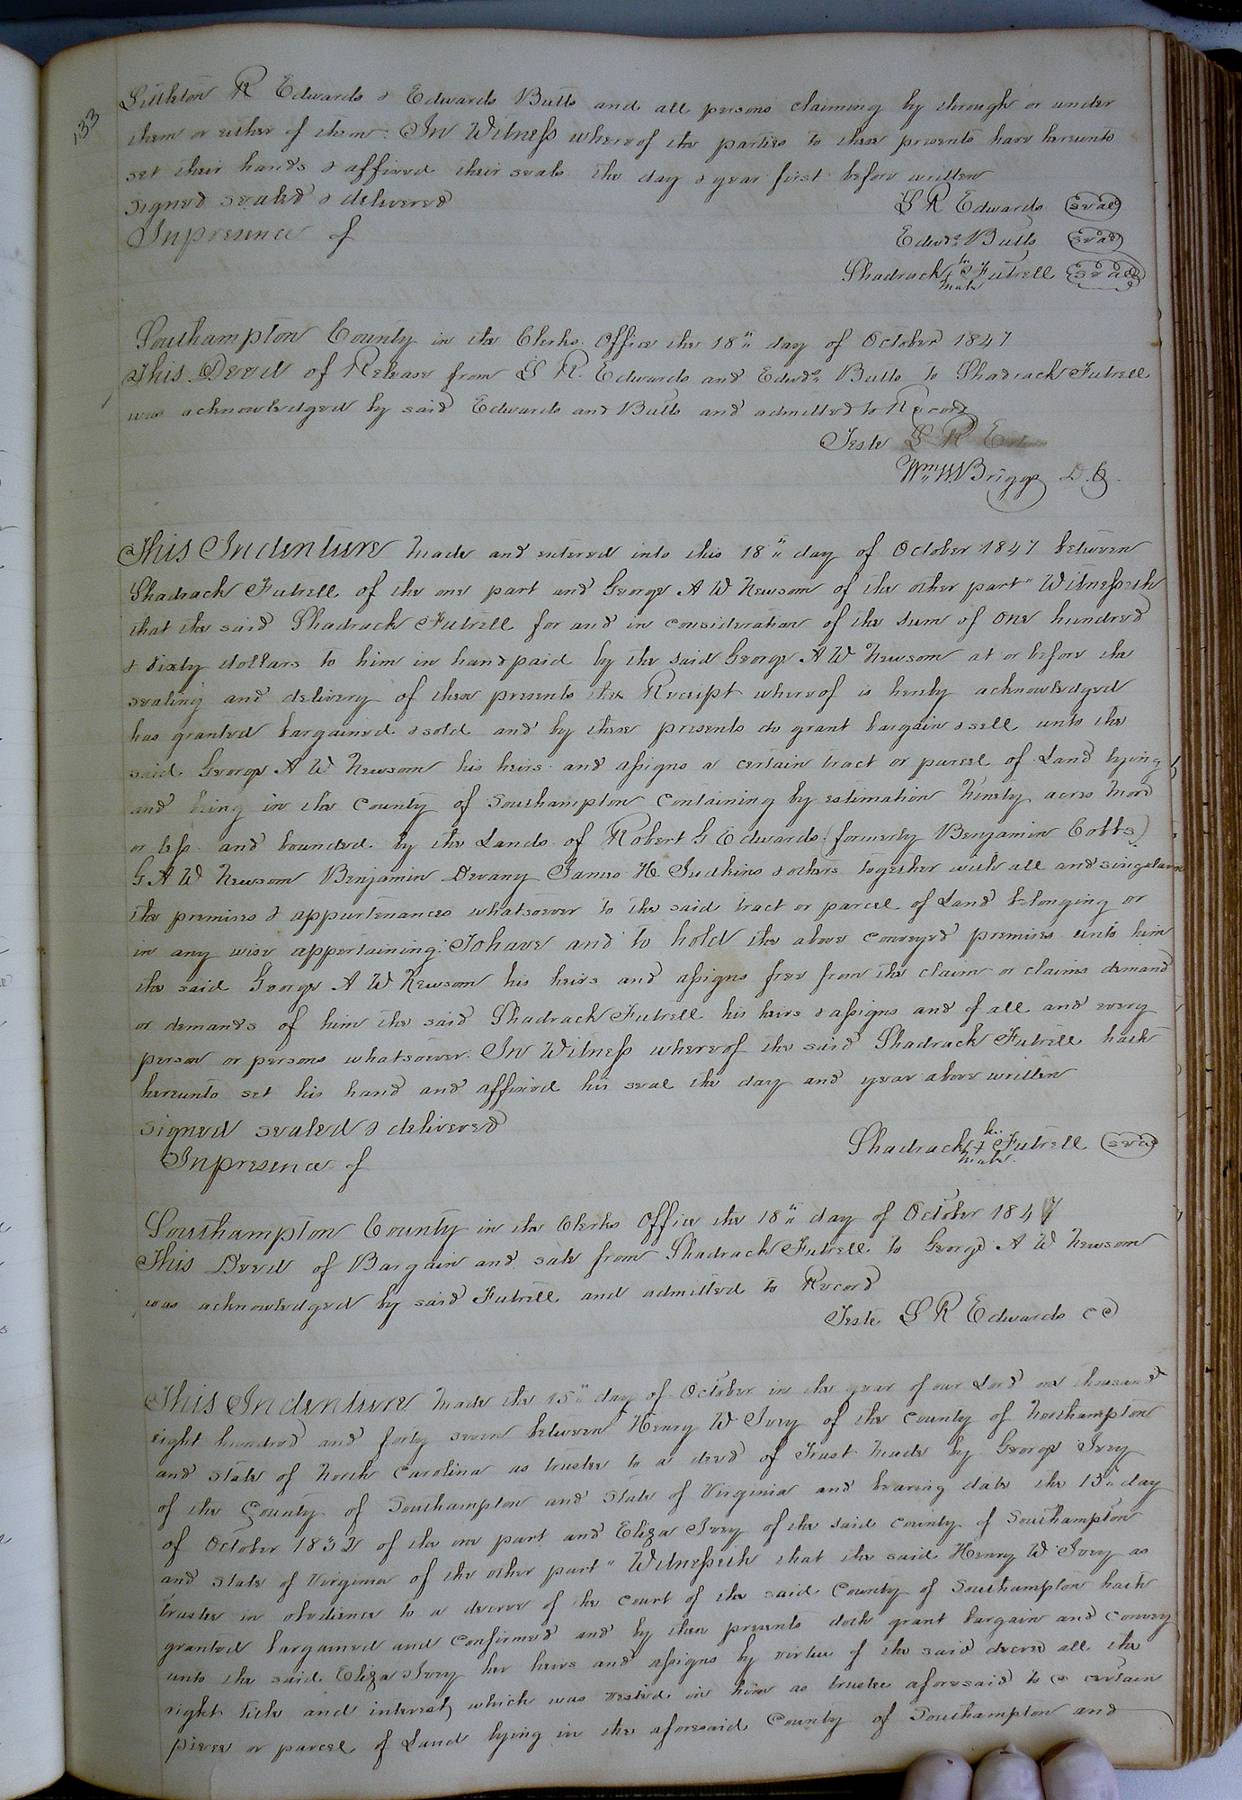 133
Littleton R Edwards & Edwards Butts and all persons claiming by through or under
them or either of them. In Witness whereof the parties to these presents have hereunto
set their hands & affixed their seals the day & year first before written
signed sealed & delivered
In presence of
L R Edwards seal
Edwds Butts seal
Shadrack his + mark Futrell seal
Southampton County in the Clerks Office the 18" day of October 1847
This Deed of Release from L R. Edwards and Edwds Butts to Shadrack Futrell
was acknowledged by said Edwards and Butts and admitted to Record
Teste L R Ed
Wm W Briggs D.C.
This Indenture made and entered into this 18" day of October 1847 between
Shadrack Futrell of the one part and George A W Newsom of the other part" Witnesseth
that the said Shadrack Futrell for and in consideration of the sum of one hundred
& sixty dollars to him in hand paid by the said George A W Newsom at or before the
sealing and delivery of these presents the Receipt whereof is hereby acknowledged
has granted bargained & sold and by these presents do grant bargain & sell unto the
said George A W Newsom his heirs and assigns a certain tract or parcel of Land lying
and being in the County of Southampton Containing by estimation Ninety acres more
or less and bounded by the Lands of Robert G Edwards (formerly Benjamin Cobbs)
G A W Newsom Benjamin Devany James H Judkins & others together with all and singular
the premises & appurtenances whatsoever to the said tract or parcel of Land belonging or
in any wise appertaining. To have and to hold the above conveyed premises unto him
the said George A W Newsom his heirs and assigns free from the claim or claims demand
or demands of him the said Shadrack Futrell his heirs & assigns and of all and every
person or persons whatsoever. In Witness whereof the said Shadrack Futrell hath
hereunto set his hand and affixed his seal the day and year above written
signed sealed & delivered
In presence of
Shadrack his + mark Futrell seal
Southampton County in the Clerks Office the 18" day of October 1847
This Deed of Bargain and sale from Shadrack Futrell to George A W Newsom
was acknowledged by said Futrell and admitted to Record
Teste L R Edwards cc
This Indenture made the 15" day of October in the year of our Lord one thousand
eight hundred and forty seven between Henry W Ivey of the County of Northampton
and State of North Carolina as trustee to a deed of Trust made by George Ivey
of the County of Southampton and State of Virginia and bearing date the 13" day
of October 1832 of the one part and Eliza Ivey of the said County of Southampton
and State of Virginia of the other part" Witnesseth that the said Henry W Ivey as
trustee in obedience to a decree of the court of the said County of Southampton hath
granted bargained and confirmed and by these presents doth grant bargain and convey
unto the said Eliza Ivey her heirs and assigns by virtue of the said decree all the
right title and interest which was vested in him as trustee aforesaid to a certain
piece or parcel of Land lying in the aforesaid County of Southampton and